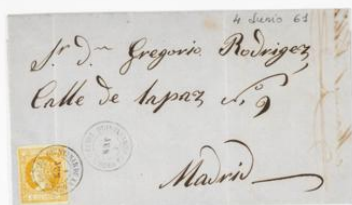 4 Junio 61
Sr. Dn Gregorio Rodrigez
Calle de lapaz nº 9
Madrid